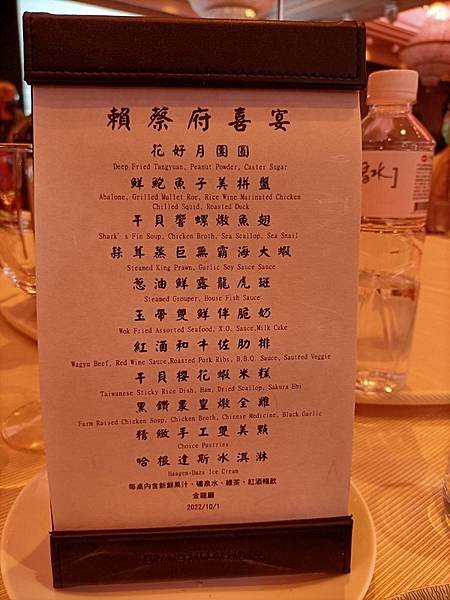 賴蔡府喜宴
花好月圓圓
Deep Fried Tangyuan, Peanut Powder, Caster Sugar
鮮鮑魚子美拼盤
Abalone, Grilled Mullet Roe, Rice Wine Marinated Chicken
Chilled Squid, Roasted Duck
干貝響螺燉魚翅
Shark's Fin Soup, Chicken Broth, Sea Scallop, Sea Snail
蒜茸蒸巨無霸海大蝦
Steamed King Prawn, Garlic Soy Sauce Sauce
蔥油鮮露龍虎斑
Steamed Grouper, House Fish Sauce
玉帶雙鮮伴脆奶
Wok Fried Assorted Seafood, X.O. Sauce,Milk Cake
紅酒和牛佐肋排
Wagyu Beef, Red Wine Sauce,Roasted Pork Ribs, B.B.Q. Sauce, Sautéed Veggie
干貝櫻花蝦米糕
Taiwanese Sticky Rice Dish, Ham, Dried Scallop, Sakura Ebi
黑鑽裏皇燉全雞
Farm Raised Chicken Soup, Chicken Broth, Chinese Medicine, Black Garlic
精緻手工雙美點
Choice Pastries
哈根達斯冰淇淋
Haagen-Dazs Ice Cream
每桌內含新鮮果汁、礦泉水、綠茶、紅酒暢飲
金龍廳
2022/10/1